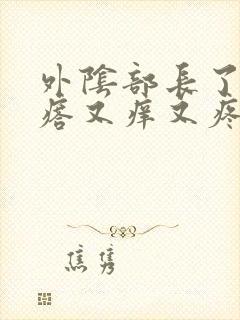 外陰部長了
瘩又痒又疼
焦隽